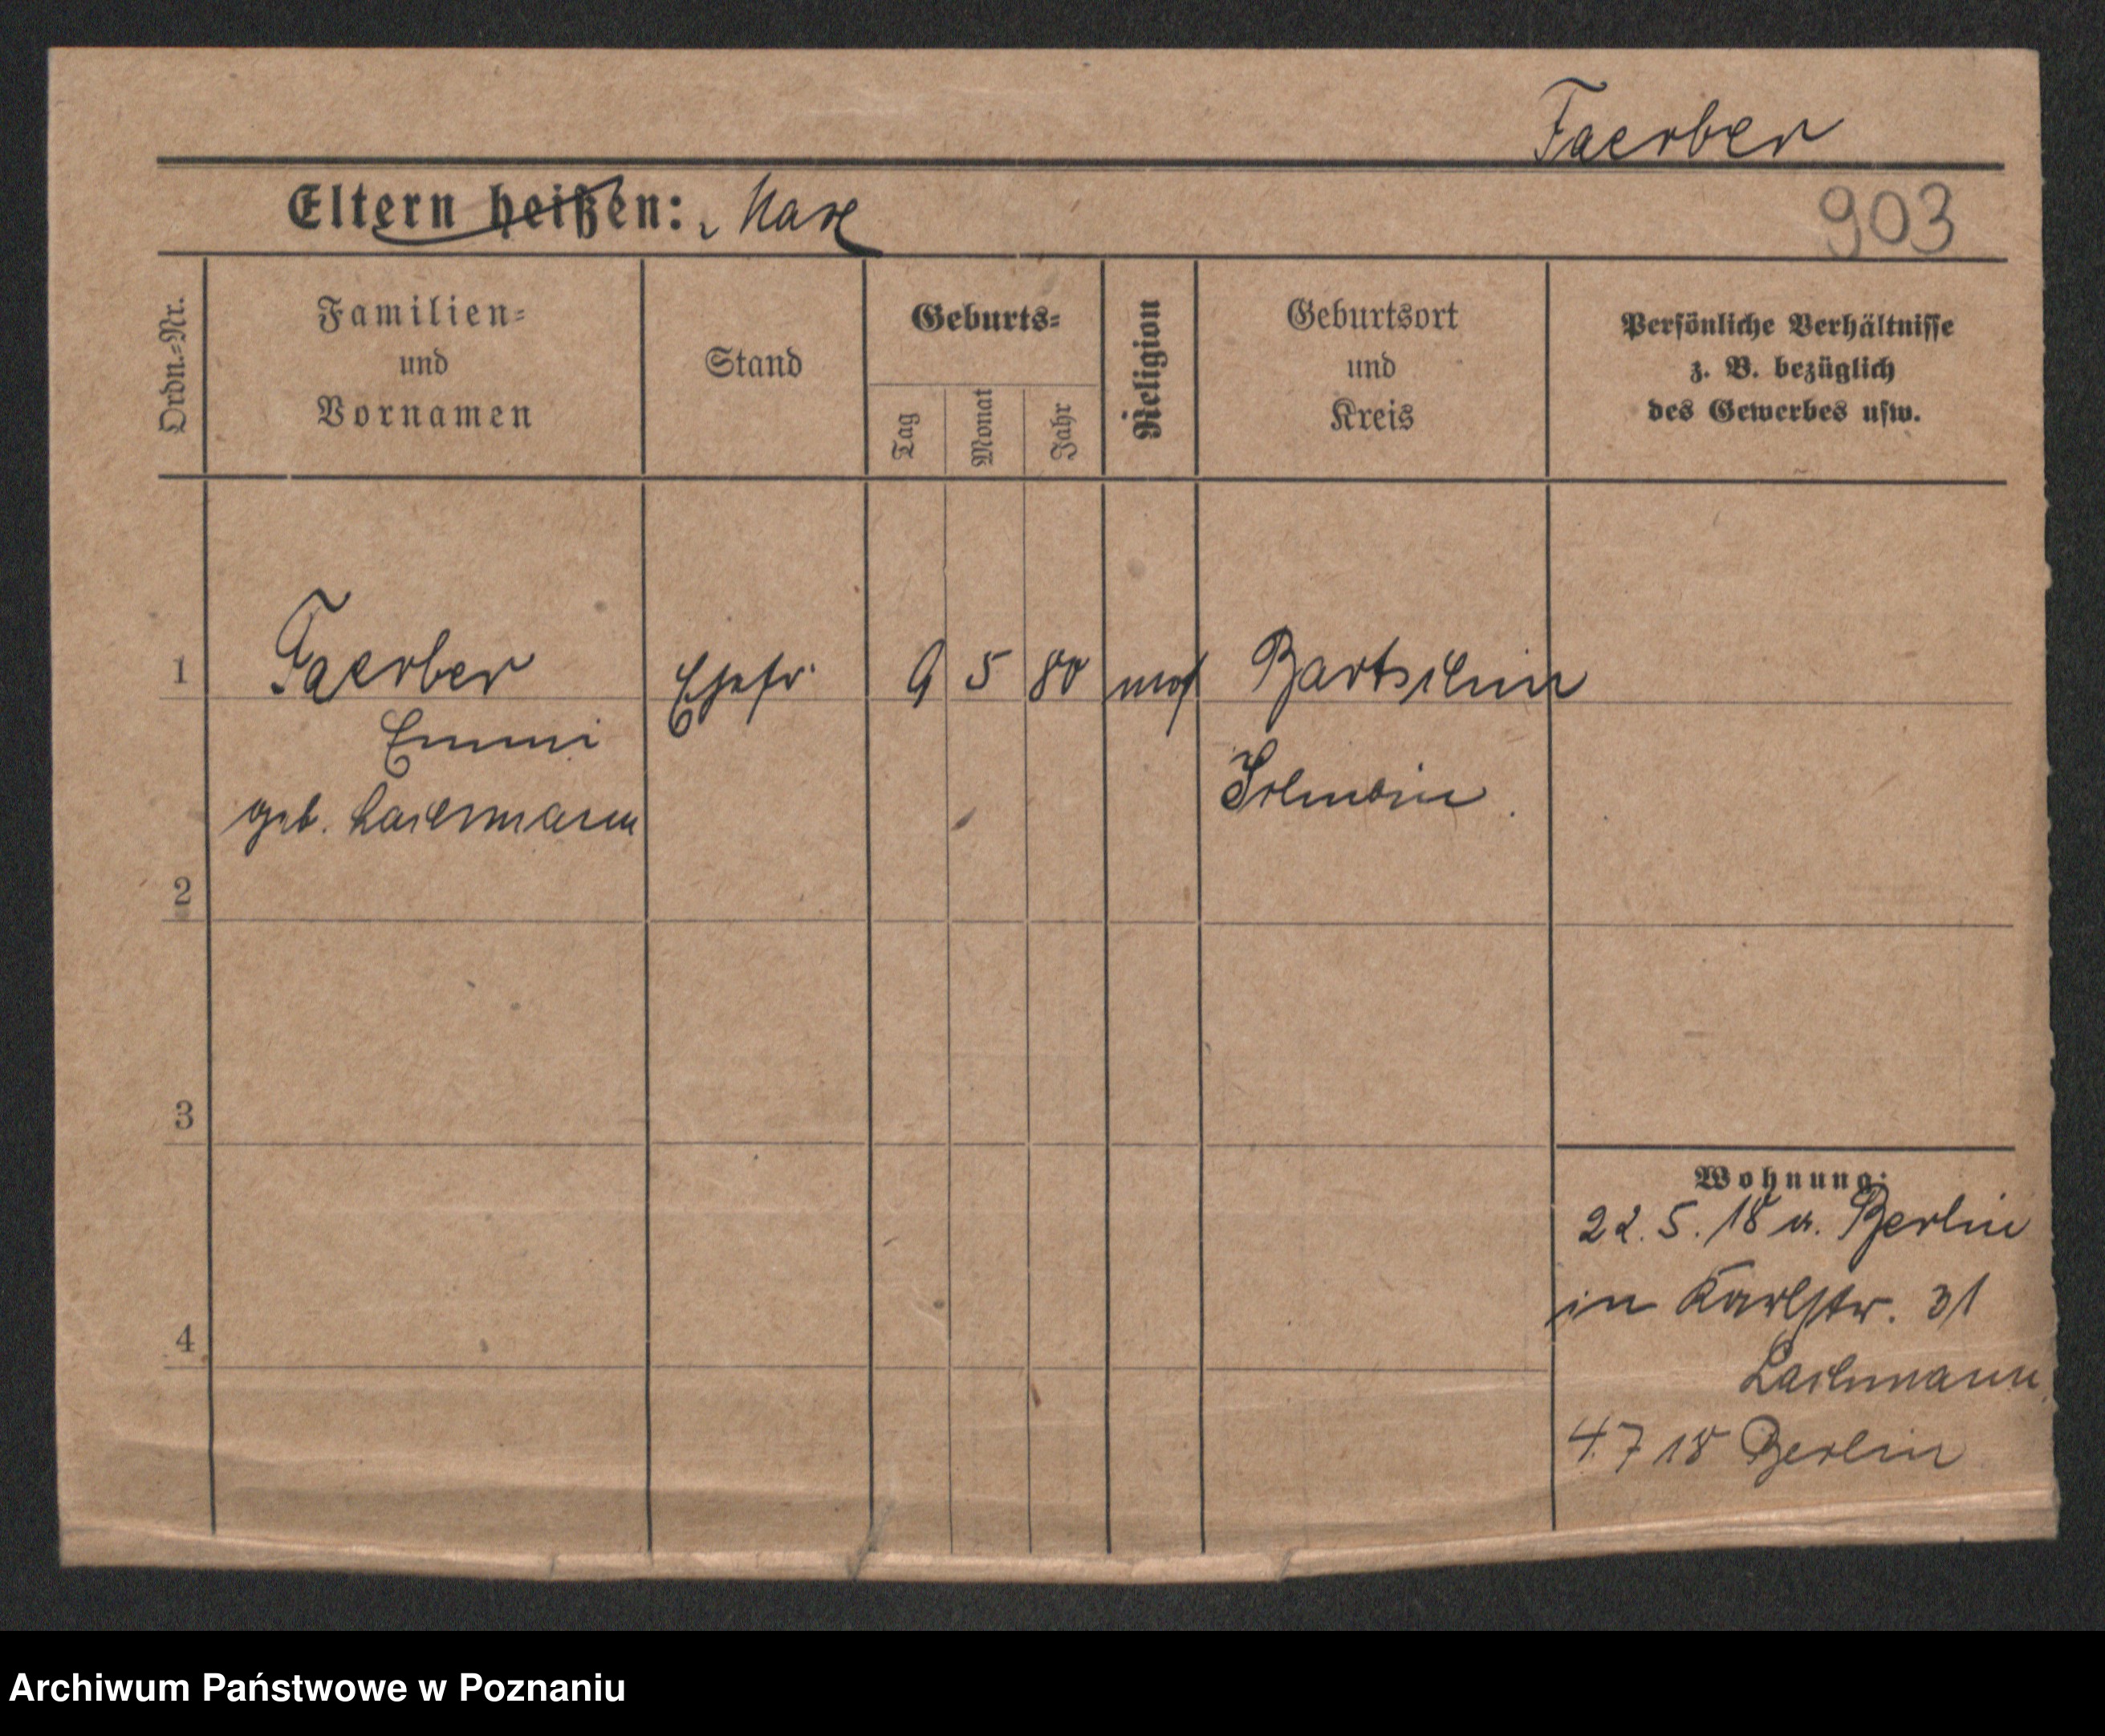 Faerber
Eltern heißen: Max
903
Ordn.=Nr.
Familien=
und
Vornamen
Stand
Geburts=
Tag
Monat
Jahr
Religion
Geburtsort
und
Kreis
Persönliche Verhältnisse
z. B. bezüglich
des Gewerbes usw.
1 Faerber Ehefr. 9 5 80 mos Bartschin
Emmi
geb. Lachmann
Schubin.
2
3
4
Wohnung:
22. 5. 18 a. Berlin
in Karlstr. 31
Lachmann
4.7 18 Berlin
Archiwum Państwowe w Poznaniu